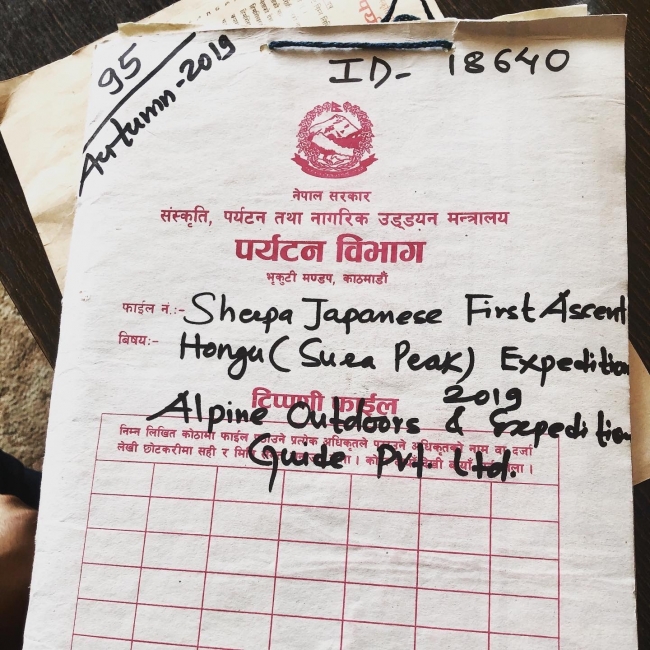 95
Autumn-2019
ID- 18640
नेपाल सरकार
संस्कृति, पर्यटन तथा नागरिक उड्डयन मन्त्रालय
पर्यटन विभाग
भृकुटी मण्डप, काठमाडौं
फाईल नं.:- Sherpa Japanese First Ascent
विषय:- Hongu (Sura Peak) Expedition
2019
टिप्पणी फाईल
Alpine Outdoors & Expedition
Guide Pvt. Ltd.
निम्न लिखित कोठामा फाईल पठाउने प्रत्येक अधिकृतले पठाउने अधिकृतको नाम वा दर्जा
लेखी छोटकरीमा सही र